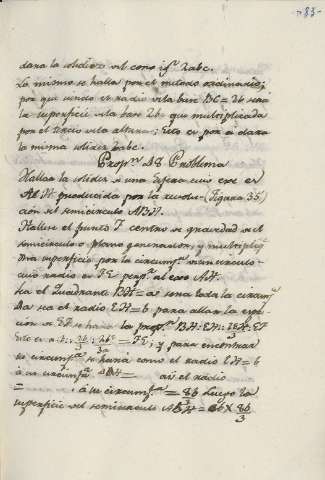 -83-
dara la solidez del cono igl. 2abc.
Lo mismo se halla por el metodo ordinario;
por que siendo el radio de la base BC = 2b será
la superficie de la base 2bc que multiplicada
por el tercio de la altura; Esto es por a dara
la misma solidez 2abc.
Propn. 48 Problema
Hallar la solidez de una Esfera cuio exe es
AH producida por la revolu- (Figura 35)
cion del semicirculo ABH.
Hallese el punto F centro de gravedad de el
semicirculo o plano generador, y multipliq.
una superficie por la circumfa. de un circulo
cuio radio es FE perpr. al exe AH.
Sea el Quadrante BH = a sera toda la circumfa.
4a sea el radio EH = b para allar la espre
cion de EF se hara la propn. BH : EH :: 2EH/3 : EF
Esto es a : b :: 2b/3 : 2b²/3a = FE; y para encontrar
su circumfa. se hará como el radio EH = b
á su circumfa. 4BH = asi el radio
= á su circumfa. = 8b/3 Luego la
superficie del semicirculo ABH = ab × 8b/3